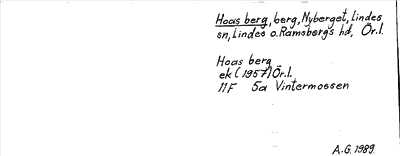 Hoas berg, berg, Nyberget, Lindes
sn, Lindes o. Ramsbergs hd, Ör.l.
Hoas berg
ek (1957) Ör.l.
11F 5a Vintermossen
A-G. 1989.